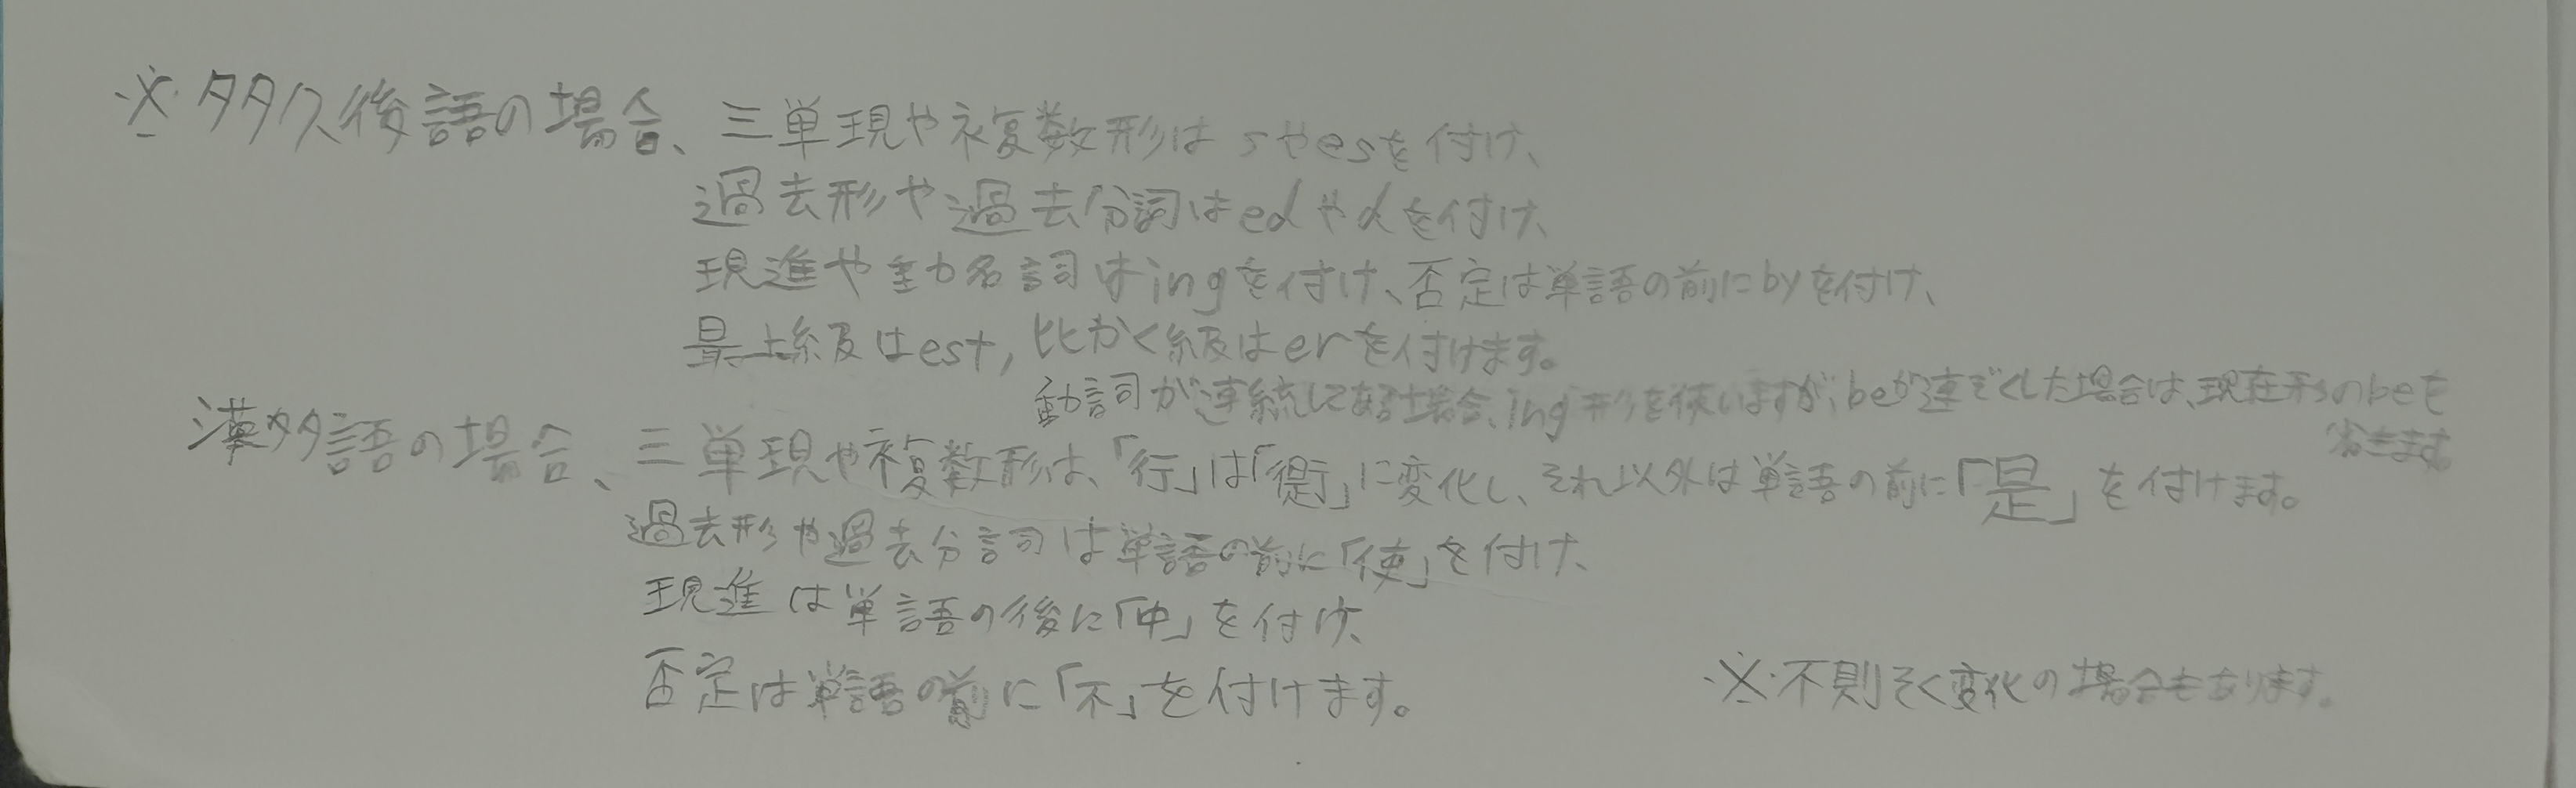 ※タタハス後語の場合、三単現や複数形はsやesを付け、
過去形や過去分詞はedやdを付け、
現進や動名詞はingを付け、否定は単語の前にbyを付け、
最上級はest, 比かく級はerを付けます。
動詞が連続してある場合、ing形を使いますが、beが連ぞくした場合は、現在形のbeを
省きます
漢タタ語の場合、三単現や複数形は、「行」は「衦」に変化し、それ以外は単語の前に「是」を付けます。
過去形や過去分詞は単語の前に「使」を付け、
現進は単語の後に「中」を付け、
否定は単語の前に「不」を付けます。
※不則そく変化の場合もあります。